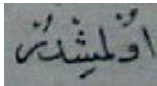 اولمشدر